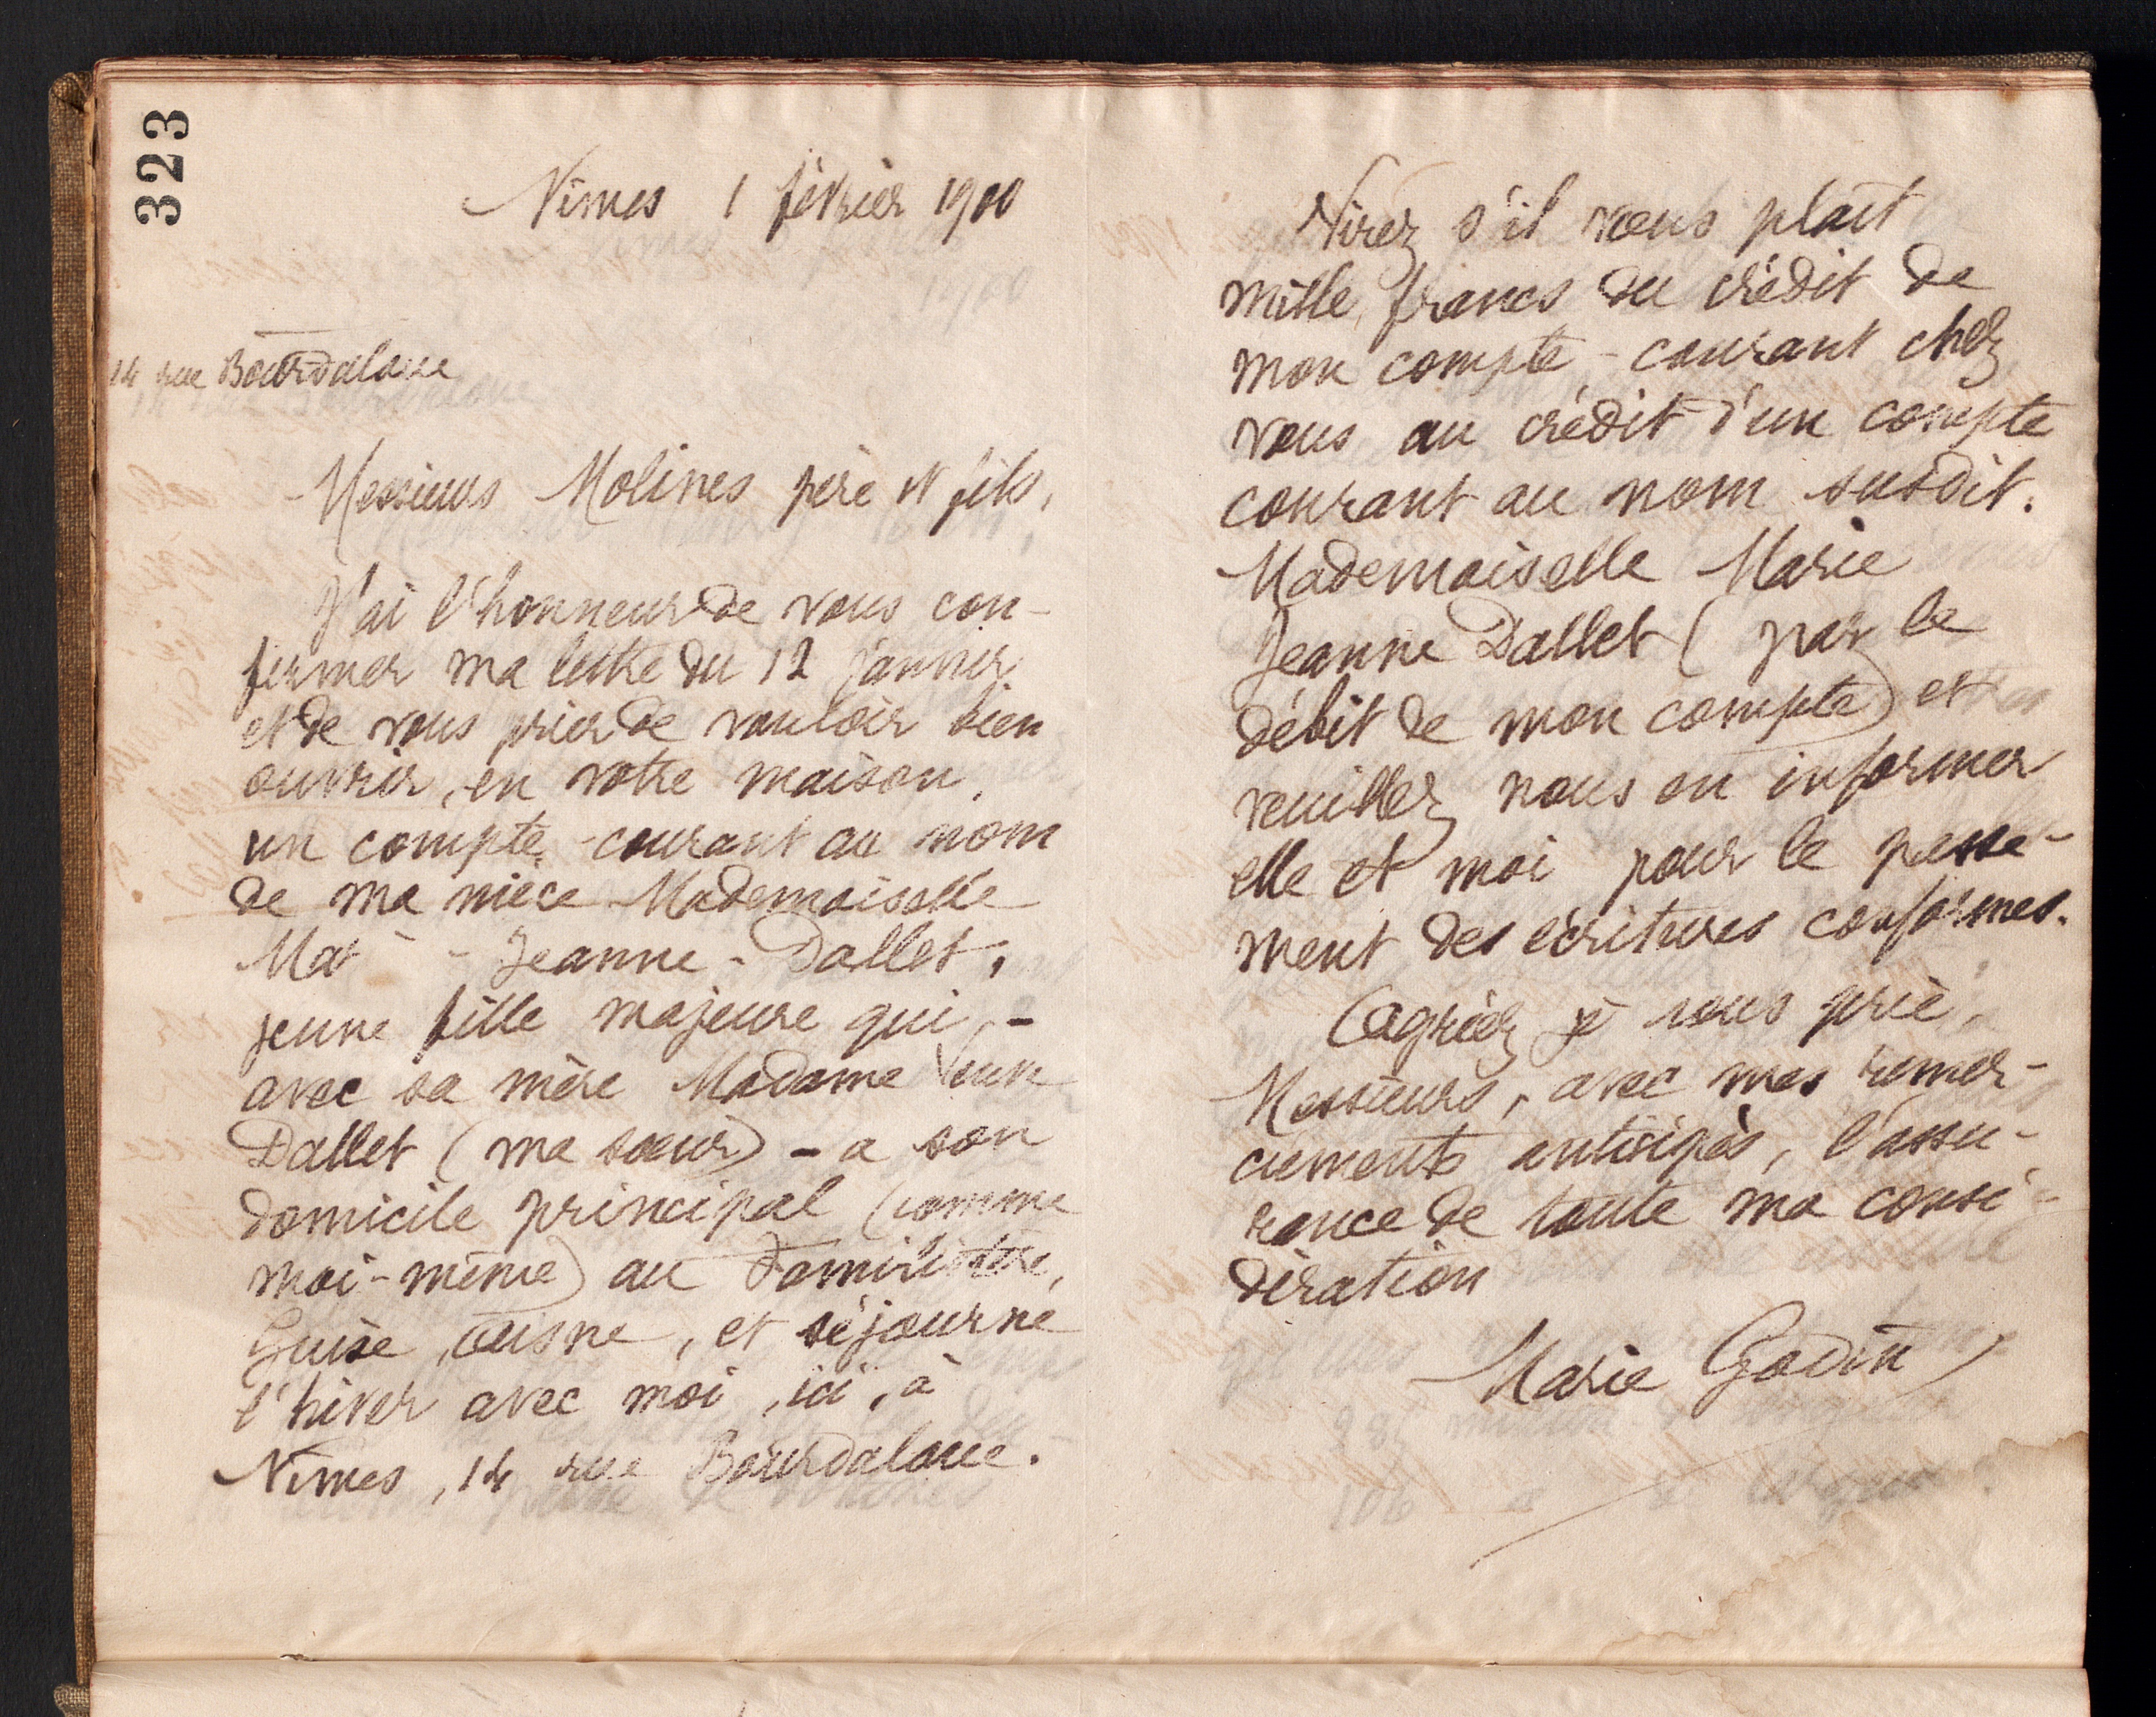 323
Nîmes 1 février 1900
14 rue Bourdaloue
Messieurs Molines père et fils,
J'ai l'honneur de vous con-
firmer ma lettre du 12 janvier
et de vous prier de vouloir bien
ouvrir, en votre maison,
un compte-courant au nom
de ma nièce Mademoiselle
Mar - Jeanne - Dallet,
jeune fille majeure qui, -
avec sa mère Madame Veuve
Dallet (ma sœur) - a son
domicile principal (comme
moi-même) au Familistère,
Guise, Aisne, et séjourne
l'hiver avec moi, ici, à
Nîmes, 14 rue Bourdaloue.
Virez s'il vous plaît
mille francs du crédit de
mon compte-courant chez
vous au crédit d'un compte
courant au nom susdit.
Mademoiselle Marie
Jeanne Dallet (par le
débit de mon compte) et
veuillez nous en informer
elle et moi pour le passe-
ment des écritures conformes.
Agréez je vous prie,
Messieurs, avec mes remer-
ciements anticipés, l'assu-
rance de toute ma consi-
dération
Marie Godin